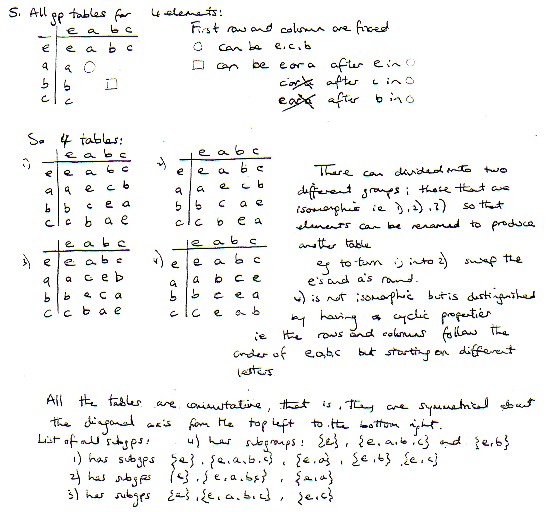 5. All gp tables for 4 elements:
e a b c
e e a b c
a a ○
b b □
c c
First row and column are fixed
○ can be e, c, b
□ can be e or a after e in ○
after c in ○
after b in ○
So 4 tables:
1) e a b c
e e a b c
a a e c b
b b c e a
c c b a e
2) e a b c
e e a b c
a a e c b
b b c a e
c c b e a
3) e a b c
e e a b c
a a c e b
b b e c a
c c b a e
4) e a b c
e e a b c
a a b c e
b b c e a
c c e a b
There can divided into two
different groups; those that are
isomorphic ie 1), 2), 3) so that
elements can be renamed to produce
another table
eg to turn 1) into 2) swap the
e's and a's round.
4) is not isomorphic but is distinguished
by having cyclic properties
ie the rows and columns follow the
order of e,a,b,c but starting on different
letters
All the tables are commutative, that is, they are symmetrical about
the diagonal axis from the top left to the bottom right.
List of all subgps: 4) has subgroups: {e}, {e,a,b,c} and {e,b}
1) has subgps {e}, {e,a,b,c}, {e,a}, {e,b}, {e,c}
2) has subgps {e}, {e,a,b,c}, {e,a}
3) has subgps {e}, {e,a,b,c}, {e,c}